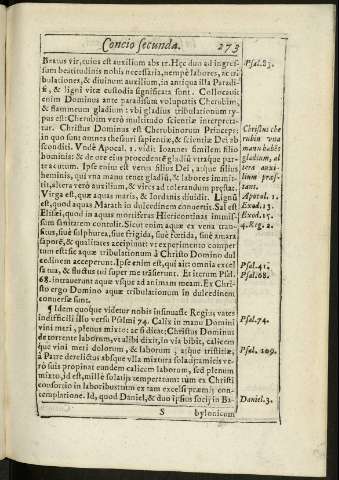 Concio secunda. 273
Beatus vir, cuius est auxilium abs te. Hęc duo ad ingres-
sum beatitudinis nobis necessaria, nempè labores, ac tri
bulationes, & diuinum auxilium, in antiqua illa Paradi-
si, & ligni vitæ custodia significata sunt. Collocauit
enim Dominus ante paradisum voluptatis Cherubim,
& flammeum gladium: vbi gladius tribulationum ty-
pus est: Cherubim verò multitudo scientiæ interpreta-
tur. Christus Dominus est Cherubinorum Princeps:
in quo sunt omnes thesauri sapientiæ, & scientiæ Dei ab
sconditi. Vnde Apocal. 1. vidit Ioannes similem filio
hominis: & de ore eius procedentē gladiū vtraque par-
te acutum. Ipse enim est verus filius Dei, atque filius
hominis, qui vna manu tenet gladiū, & labores immit-
tit, altera verò auxilium, & vires ad tolerandum præstat.
Virga est, quæ aquas maris, & Iordanis diuidit. Lignū
est, quod aquas Marath in dulcedinem conuertit. Sal est
Elisæi, quod in aquas mortiferas Hiericontinas immis-
sum sanitatem contulit. Sicut enim aquæ ex vena tran-
seuntes, siue sulphurea, siue frigida, siue fœtida, siue amara
saporē, & qualitates accipiunt: vt experimento comper
tum est: sic aquæ tribulationum à Christo Domino dul
cedinem acceperunt. Ipse enim est, qui ait: omnia excel
sa tua, & fluctus tui super me trāsierunt. Et iterum Psal.
68. intrauerunt aquæ vsque ad animam meam. Ex Chri-
sto ergo Domino aquæ tribulationum in dulcedinem
conuersæ sunt.
¶ Idem quoque videtur nobis insinuasse Regius vates
in difficili illo versu Psalmi 74. Calix in manu Domini
vini meri, plenus mixto: ac si dicat: Christus Dominus
de torrente laborum, vt alibi dixit, in via bibit, calicem
que vini meri dolorum, & laborum; atque tristitiæ,
à Patre derelictus absque vlla mixtura solatij: amicis ve-
rò suis propinat eundem calicem laborum, sed plenum
mixto, id est, mille solatijs temperatum: tum ex Christi
consortio in laboribus: tum ex tam excelsi præmij con-
templatione. Id, quod Daniel, & duo ipsius socij in Ba-
S bylonicum
Psal. 83.
Christus che
rubin vna
manu habēs
gladium, al
tera auxi-
lium præs-
tant.
Apocal. 1.
Exod. 13.
Exod. 15.
4. Reg. 2.
Psal. 41.
Psal. 68.
Psal. 74.
Psal. 109.
Daniel. 3.